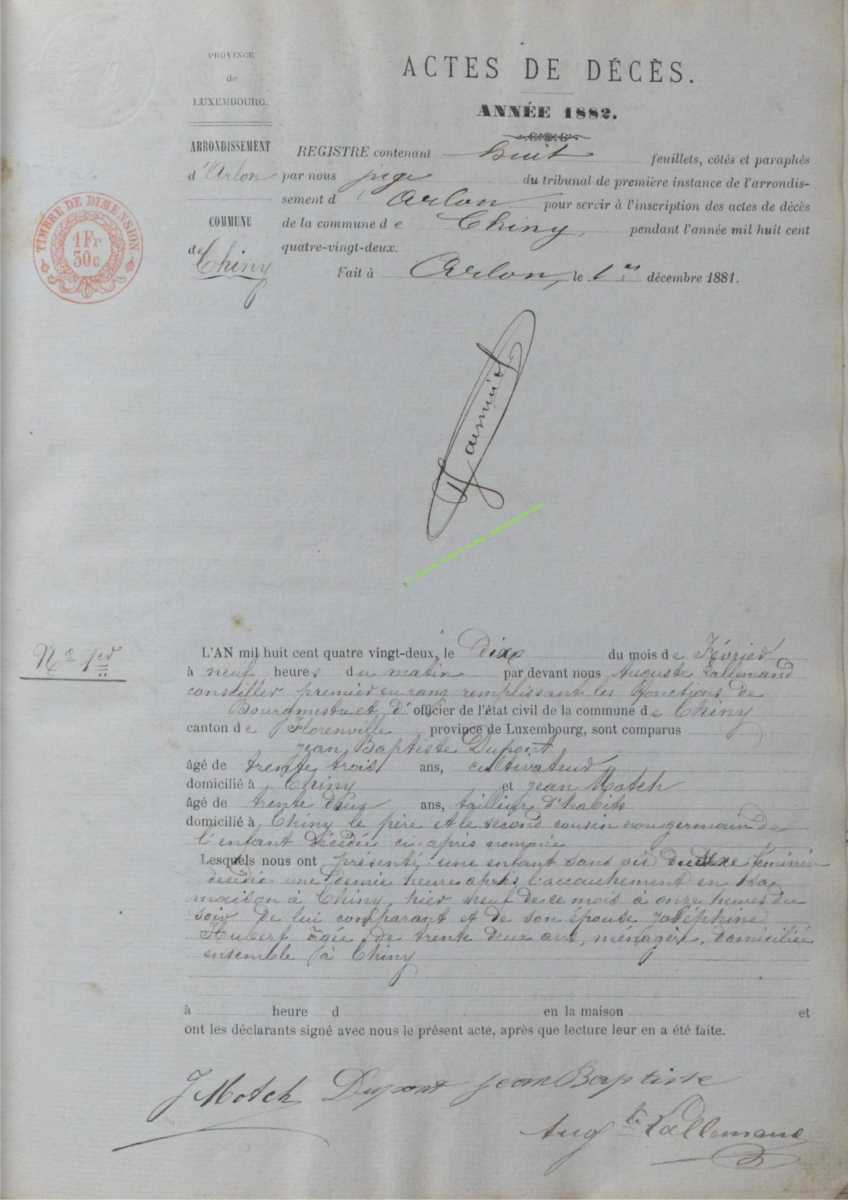 PROVINCE
de
LUXEMBOURG.
ARRONDISSEMENT
d'Arlon
COMMUNE
de Chiny
TIMBRE DE DIMENSION
1 Fr
30 c
ACTES DE DÉCÈS.
ANNÉE 1882.
REGISTRE contenant huit feuillets, côtés et paraphés
par nous juge du tribunal de première instance de l'arrondis-
sement d'Arlon pour servir à l'inscription des actes de décès
de la commune de Chiny, pendant l'année mil huit cent
quatre-vingt-deux.
Fait à Arlon, le 1er décembre 1881.
N° 1er
L'AN mil huit cent quatre vingt-deux, le dix du mois de Février
à neuf heures du matin par devant nous Auguste Lallemand
conseiller premier en rang remplissant les fonctions de
Bourgmestre et d'officier de l'état civil de la commune de Chiny
canton de Florenville province de Luxembourg, sont comparus
Jean Baptiste Dupont
âgé de trente trois ans, cultivateur
domicilié à Chiny et Jean Motch
âgé de trente deux ans, tailleur d'habits
domicilié à Chiny le père et le second cousin germain de
l'enfant décédée ci après nommée
Lesquels nous ont présenté une enfant sans vie du sexe féminin
décédée une demie heure après l'accouchement en sa
maison à Chiny, hier neuf de ce mois à onze heures du
soir de lui comparant et de son épouse Joséphine
Hubert âgée de trente deux ans, ménagère, domiciliée
ensemble à Chiny
à heure d en la maison et
ont les déclarants signé avec nous le présent acte, après que lecture leur en a été faite.
J Motch Dupont Jean Baptiste
Augte Lallemand